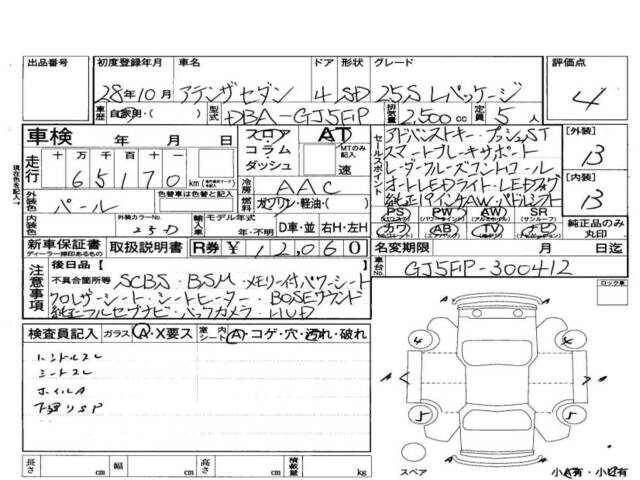 出品番号 初度登録年月 車名 ドア 形状 グレード 評価点
28年10月 アテンザセダン 4 SD 25S Lパッケージ 4
車歴 自家用・( ) 型式 DBA-GJ5FP 排気量 2,500cc 定員 5人
車検 年 月 日 フロア AT
コラム MTのみ記入
ダッシュ 速
走行 十万 万 千 百 十
65170 km
冷房 AAC
燃料 ガソリン・軽油・( )
現在色を記入→
外装色 パール 色替車は色替と記入
内装色 外装カラーNo. 25D
輸入車 モデル年式 年・不明 D車・並 右H・左H
セールスポイント
アドバンストキー・プッシュST
スマートブレーキサポート
レーダークルーズコントロール
オートLEDライト・LEDフォグ
純正19インチAW・パドルシフト
PS PW AW SR
カワ AB TV ナビ
[外装] B
[内装] B
純正品のみ丸印
新車保証書 取扱説明書 R券 ¥ 12,060
ディーラー捺印あるもの
名変期限 月 日迄
車台No. GJ5FP-300412
注意事項 後日品( )
不具合箇所等 SCBS・BSM・メモリー付パワーシート
クロレザーシート・シートヒーター・BOSEサウンド
純正フルセグナビ・バックカメラ・HUD
ロック車
検査員記入 ガラス A・X要ス 室内シート A・コゲ・穴・汚れ・破れ
ハンドルスレ
シートスレ
ホイルA
下廻りSP
4 4
A A
5 5
A
スペア
小A有・小U有
長さ cm 幅 cm 高さ cm 積載量 kg